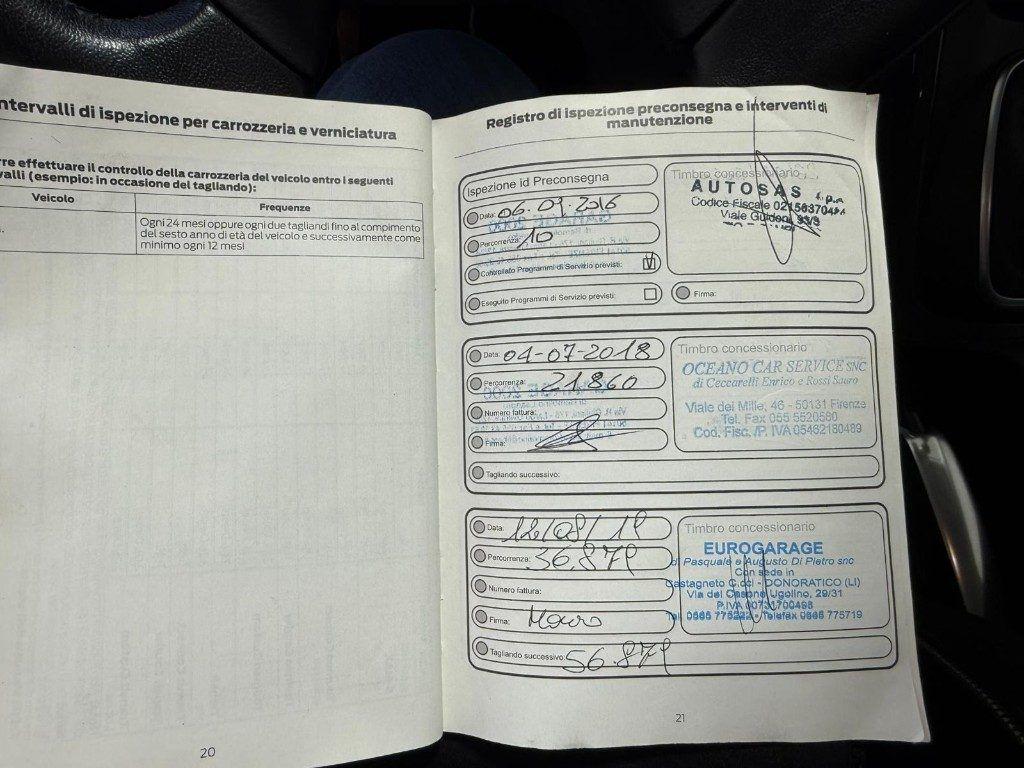 ntervalli di ispezione per carrozzeria e verniciatura
rre effettuare il controllo della carrozzeria del veicolo entro i seguenti
valli (esempio: in occasione del tagliando):
Veicolo
Frequenze
Ogni 24 mesi oppure ogni due tagliandi fino al compimento
del sesto anno di età del veicolo e successivamente come
minimo ogni 12 mesi
20
Registro di ispezione preconsegna e interventi di
manutenzione
Ispezione id Preconsegna
Data: 06.09.2016
Percorrenza: 10
Controllato Programmi di Servizio previsti:
Eseguito Programmi di Servizio previsti:
Timbro concessionario
AUTOSAS s.p.a
Codice Fiscale
Viale Guidoni
Firma:
Data: 04-07-2018
Percorrenza: 21860
Numero fattura:
Firma:
Tagliando successivo:
Timbro concessionario
OCEANO CAR SERVICE SNC
di Ceccarelli Enrico e Rossi Sauro
Viale dei Mille, 46 - 50131 Firenze
Tel. Fax 055 5520580
Cod. Fisc. /P. IVA 05462180489
Data: 12/08/19
Percorrenza: 36.879
Numero fattura:
Firma:
Tagliando successivo: 56.879
Timbro concessionario
EUROGARAGE
di Pasquale e Augusto Di Pietro snc
Con sede in
Castagneto C.cci - DONORATICO (LI)
Via del Casone Ugolino, 29/31
P.IVA
Telefax 775719
21